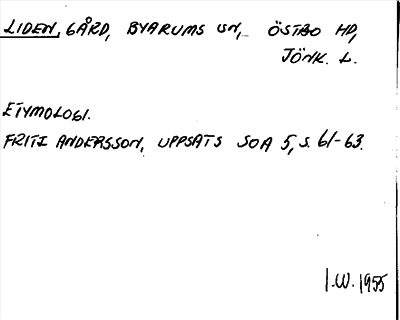 LIDEN, GÅRD, BYARUMS SN, ÖSTBO HD,
JÖNK. L.
ETYMOLOGI.
FRITZ ANDERSSON, UPPSATS SOA 5, S. 61-63.
I.W. 1955